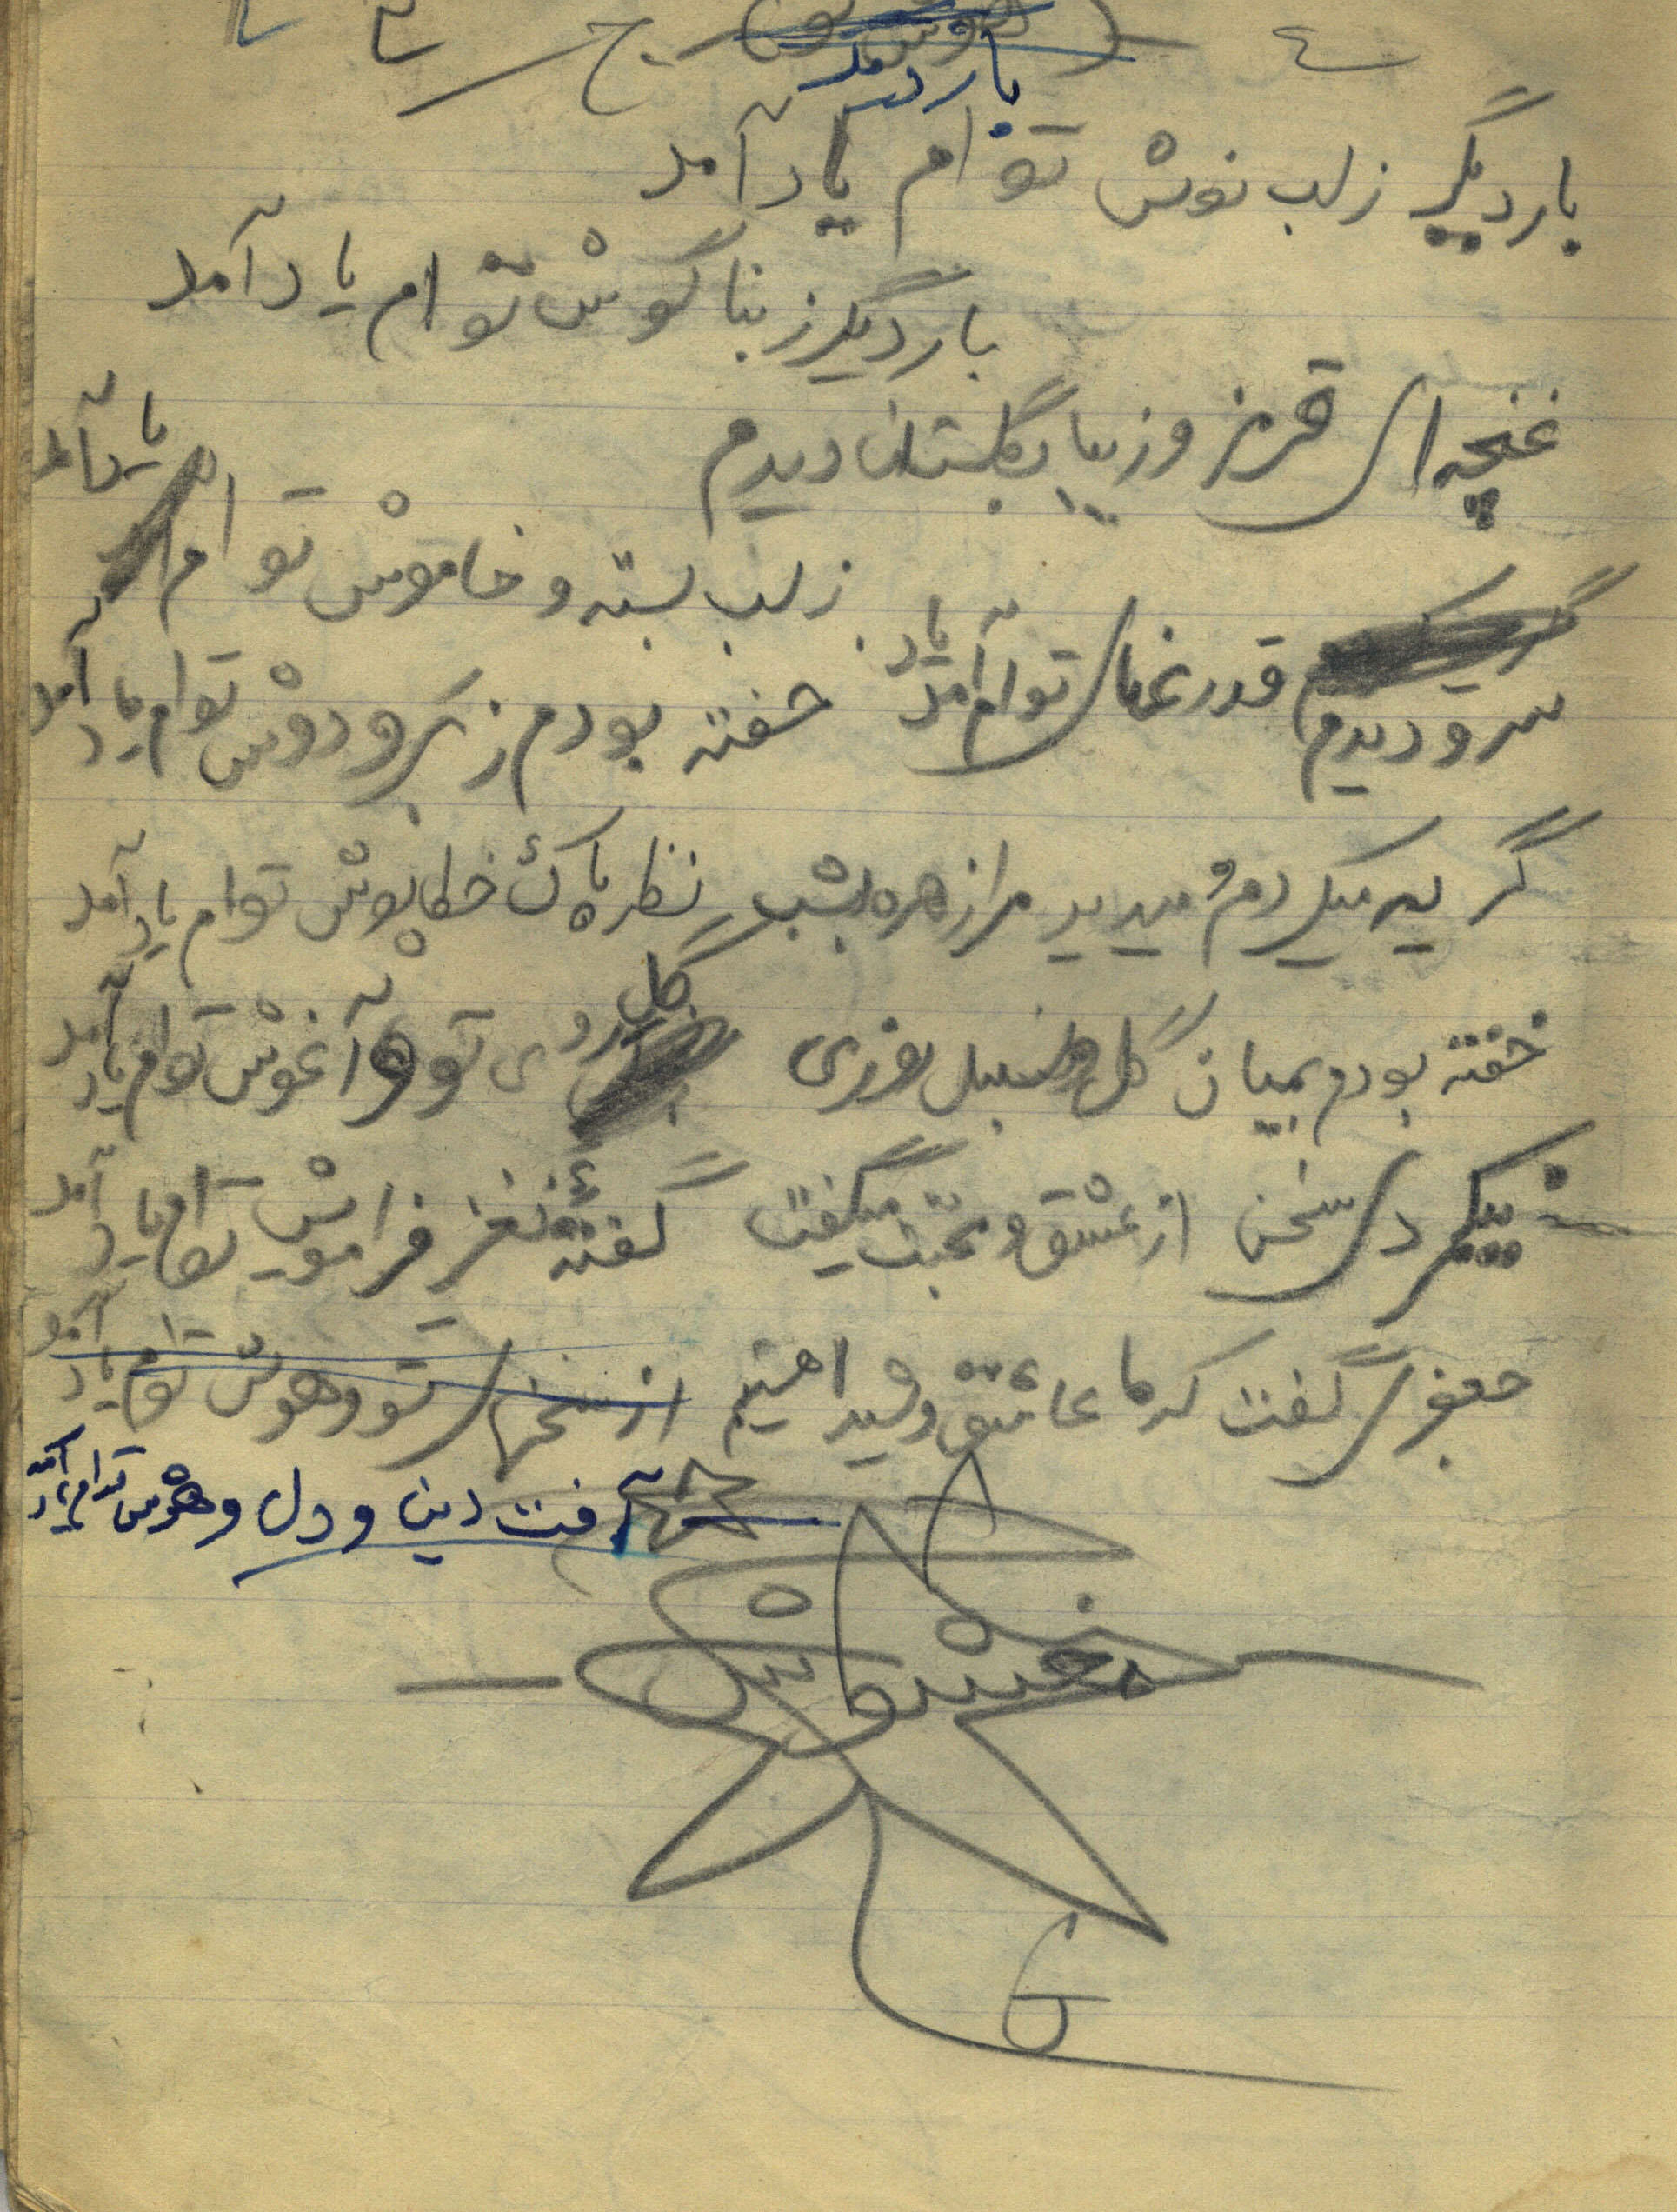 بار دیگر
بار دیگر ز لب نوش تو ام یاد آمد
بار دیگر ز بناگوش تو ام یاد آمد
غنچه ای قرمز و زیبا بگلستان دیدم
ز لب بسته و خاموش تو ام یاد آمد
سرو دیدم قد رعنای تو ام یاد آمد خفته بودم ز بر و دوش تو ام یاد آمد
گریه میکردم و میدید مرا زهره بشب نظر پاک خطا پوش تو ام یاد آمد
خفته بودم بمیان گل و سنبل روزی گل روی تو و آغوش تو ام یاد آمد
دی سخن از عشق و محبت میگفت گفتهٔ نغز فراموش تو ام یاد آمد
جعفری گفت که ما عاشق و شیدا هستیم از سخنهای تو و هوش تو ام یاد آمد
آفت دین و دل و هوش تو ام یاد آمد